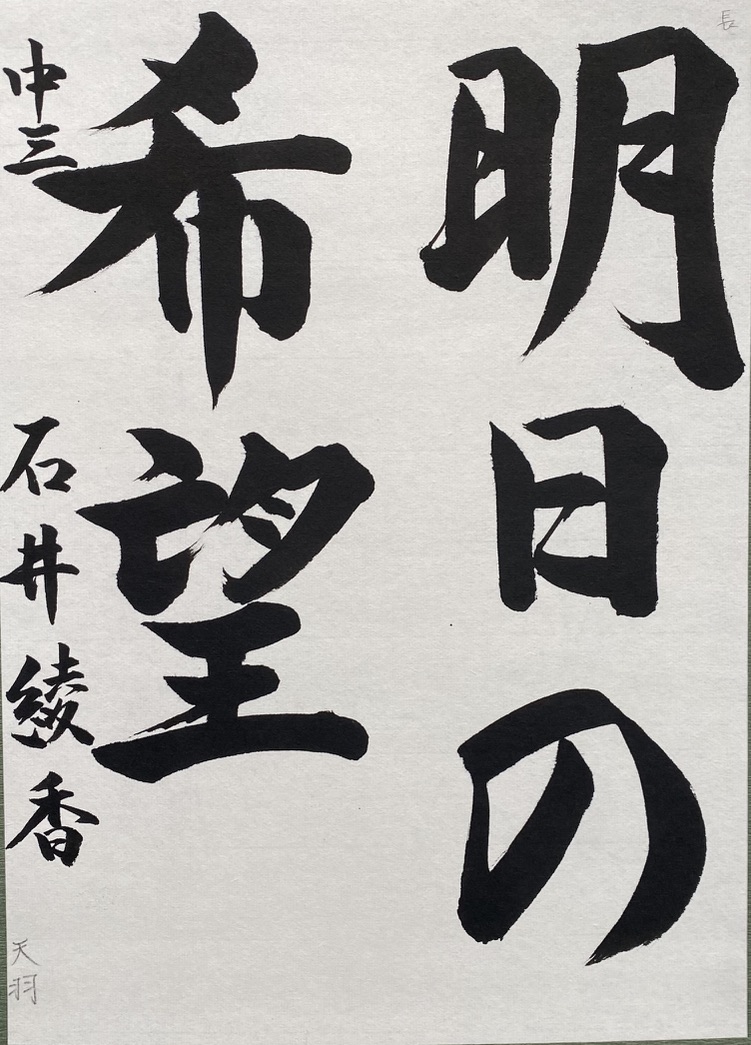 長
明日の
希望
中三 石井綾香
天羽